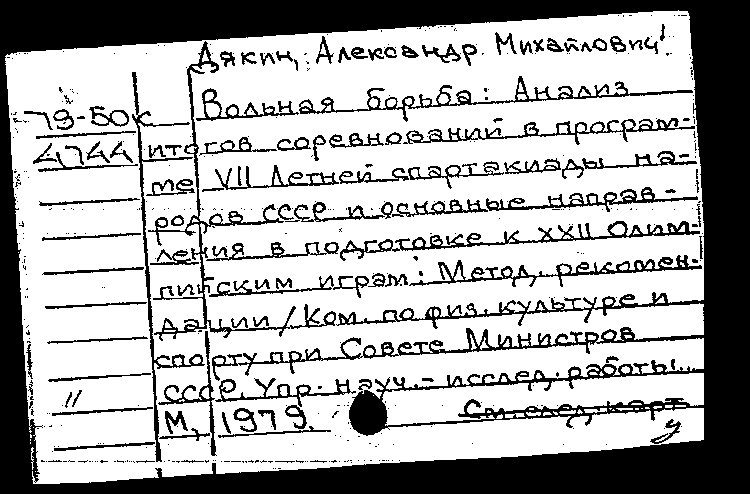 Дякин, Александр Михайлович.
79-50к Вольная борьба: Анализ
4744 итогов соревнований в програм-
ме VII Летней спартакиады на-
родов СССР и основные направ-
ления в подготовке к XXII Олим-
пийским играм: Метод. рекомен-
дации / Ком. по физ. культуре и
спорту при Совете Министров
СССР. Упр. науч.-исслед. работы...
М., 1979. См. след. карт